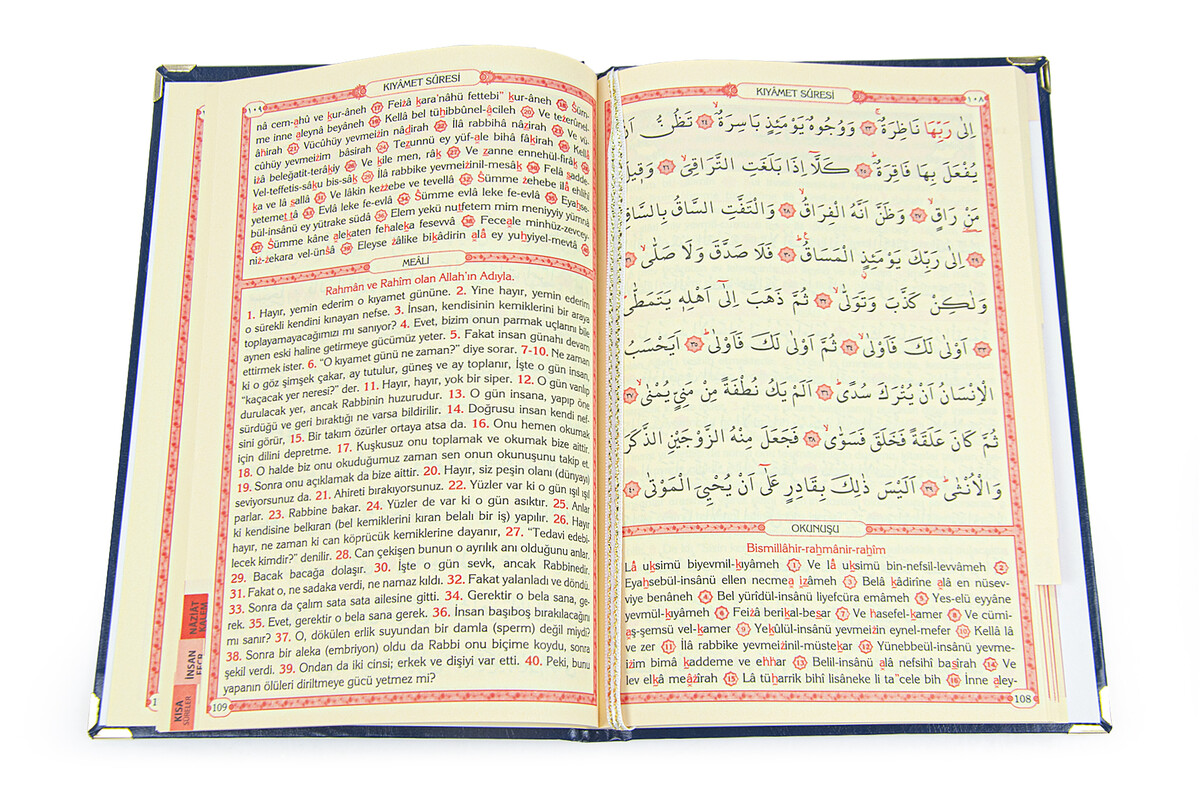 KIYÂMET SÛRESİ
١٠٨
اِلٰى رَبِّهَا نَاظِرَةٌۚ ﴿٢٣﴾ وَوُجُوهٌ يَوْمَئِذٍ بَاسِرَةٌۙ ﴿٢٤﴾ تَظُنُّ اَنْ
يُفْعَلَ بِهَا فَاقِرَةٌۜ ﴿٢٥﴾ كَلَّٓا اِذَا بَلَغَتِ التَّرَاقِيَۙ ﴿٢٦﴾ وَقٖيلَ
مَنْ رَاقٍۙ ﴿٢٧﴾ وَظَنَّ اَنَّهُ الْفِرَاقُۙ ﴿٢٨﴾ وَالْتَفَّتِ السَّاقُ بِالسَّاقِۙ
﴿٢٩﴾ اِلٰى رَبِّكَ يَوْمَئِذٍ الْمَسَاقُۜ ﴿٣٠﴾ فَلَا صَدَّقَ وَلَا صَلّٰىۙ ﴿٣١﴾
وَلٰكِنْ كَذَّبَ وَتَوَلّٰىۙ ﴿٣٢﴾ ثُمَّ ذَهَبَ اِلٰٓى اَهْلِهٖ يَتَمَطّٰىۜ
﴿٣٣﴾ اَوْلٰى لَكَ فَاَوْلٰىۙ ﴿٣٤﴾ ثُمَّ اَوْلٰى لَكَ فَاَوْلٰىۜ ﴿٣٥﴾ اَيَحْسَبُ
الْاِنْسَانُ اَنْ يُتْرَكَ سُدًىۜ ﴿٣٦﴾ اَلَمْ يَكُ نُطْفَةً مِنْ مَنِيٍّ يُمْنٰىۙ ﴿٣٧﴾
ثُمَّ كَانَ عَلَقَةً فَخَلَقَ فَسَوّٰىۙ ﴿٣٨﴾ فَجَعَلَ مِنْهُ الزَّوْجَيْنِ الذَّكَرَ
وَالْاُنْثٰىۜ ﴿٣٩﴾ اَلَيْسَ ذٰلِكَ بِقَادِرٍ عَلٰٓى اَنْ يُحْيِيَ الْمَوْتٰى ﴿٤٠﴾
OKUNUŞU
Bismillâhir-rahmânir-rahîm
Lâ uksimü biyevmil-kıyâmeh 1 Ve lâ uksimü bin-nefsil-levvâmeh 2
Eyahsebül-insânü ellen necmea izâmeh 3 Belâ kâdirîne alâ en nüsev-
viye benâneh 4 Bel yürîdül-insânü liyefcüra emâmeh 5 Yes-elü eyyâne
yevmül-kıyâmeh 6 Feizâ berikal-besar 7 Ve hasefel-kamer 8 Ve cümi-
aş-şemsü vel-kamer 9 Yekûlül-insânü yevmeizin eynel-mefer 10 Kellâ lâ
ve zer 11 İlâ rabbike yevmeizinil-müstekar 12 Yünebbeül-insânü yevme-
izim bimâ kaddeme ve ehhar 13 Belil-insânü alâ nefsihî basîrah 14 Ve
lev elkâ meâzîrah 15 Lâ tüharrik bihî lisâneke li ta"cele bih 16 İnne aley-
108
KIYÂMET SÛRESİ
١٠٩
nâ cem-ahû ve kur-âneh 17 Feizâ kara'nâhü fettebi" kur-âneh 18 Süm-
me inne aleynâ beyâneh 19 Kellâ bel tühibbûnel-âcileh 20 Ve tezerûnel-
âhirah 21 Vücûhüy yevmeizin nâdirah 22 İlâ rabbihâ nâzirah 23 Ve vü-
cûhüy yevmeizim bâsirah 24 Tezunnü ey yüf-ale bihâ fâkirah 25 Kellâ
izâ beleğatit-terâkiy 26 Ve kîle men, râk 27 Ve zanne ennehül-firâk 28
Vel-teffetis-sâku bis-sâk 29 İlâ rabbike yevmeizinil-mesâk 30 Felâ sadde-
ka ve lâ sallâ 31 Ve lâkin kezzebe ve tevellâ 32 Sümme zehebe ilâ ehlihî
yetemettâ 33 Evlâ leke fe-evlâ 34 Sümme evlâ leke fe-evlâ 35 Eyahse-
bül-insânü ey yütrake südâ 36 Elem yekü nutfetem mim meniyyiy yümnâ
37 Sümme kâne alekaten fehaleka fesevvâ 38 Feceale minhüz-zevcey-
niz-zekara vel-ünsâ 39 Eleyse zâlike bikâdirin alâ ey yuhyiyel-mevtâ 40
MEÂLİ
Rahmân ve Rahîm olan Allah'ın Adıyla.
1. Hayır, yemin ederim o kıyamet gününe. 2. Yine hayır, yemin ederim
o sürekli kendini kınayan nefse. 3. İnsan, kendisinin kemiklerini bir araya
toplayamayacağımızı mı sanıyor? 4. Evet, bizim onun parmak uçlarını bile
aynen eski haline getirmeye gücümüz yeter. 5. Fakat insan günahı devam
ettirmek ister. 6. "O kıyamet günü ne zaman?" diye sorar. 7-10. Ne zaman
ki o göz şimşek çakar, ay tutulur, güneş ve ay toplanır, İşte o gün insan,
"kaçacak yer neresi?" der. 11. Hayır, hayır, yok bir siper. 12. O gün varılıp
durulacak yer, ancak Rabbinin huzurudur. 13. O gün insana, yapıp öne
sürdüğü ve geri bıraktığı ne varsa bildirilir. 14. Doğrusu insan kendi nef-
sini görür, 15. Bir takım özürler ortaya atsa da. 16. Onu hemen okumak
için dilini depretme. 17. Kuşkusuz onu toplamak ve okumak bize aittir.
18. O halde biz onu okuduğumuz zaman sen onun okunuşunu takip et.
19. Sonra onu açıklamak da bize aittir. 20. Hayır, siz peşin olanı (dünyayı)
seviyorsunuz da. 21. Ahireti bırakıyorsunuz. 22. Yüzler var ki o gün ışıl ışıl
parlar. 23. Rabbine bakar. 24. Yüzler de var ki o gün asıktır. 25. Anlar
ki kendisine belkıran (bel kemiklerini kıran belalı bir iş) yapılır. 26. Hayır
hayır, ne zaman ki can köprücük kemiklerine dayanır, 27. "Tedavi edebi-
lecek kimdir?" denilir. 28. Can çekişen bunun o ayrılık anı olduğunu anlar.
29. Bacak bacağa dolaşır. 30. İşte o gün sevk, ancak Rabbinedir.
31. Fakat o, ne sadaka verdi, ne namaz kıldı. 32. Fakat yalanladı ve döndü.
33. Sonra da çalım sata sata ailesine gitti. 34. Gerektir o bela sana, ge-
rek. 35. Evet, gerektir o bela sana gerek. 36. İnsan başıboş bırakılacağını
mı sanır? 37. O, dökülen erlik suyundan bir damla (sperm) değil miydi?
38. Sonra bir aleka (embriyo) oldu da Rabbi onu biçime koydu, sonra
şekil verdi. 39. Ondan da iki cinsi; erkek ve dişiyi var etti. 40. Peki, bunu
yapanın ölüleri diriltmeye gücü yetmez mi?
109
NÂZİÂT
KALEM
İNSAN
FECR
KISA
SÛRELER